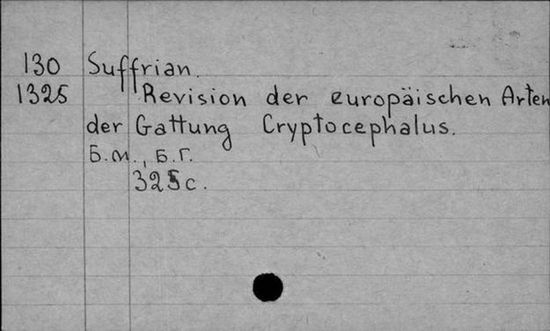 130 Suffrian.
1325 Revision der europäischen Arten
der Gattung Cryptocephalus.
Б.м., Б.г.
325 с.